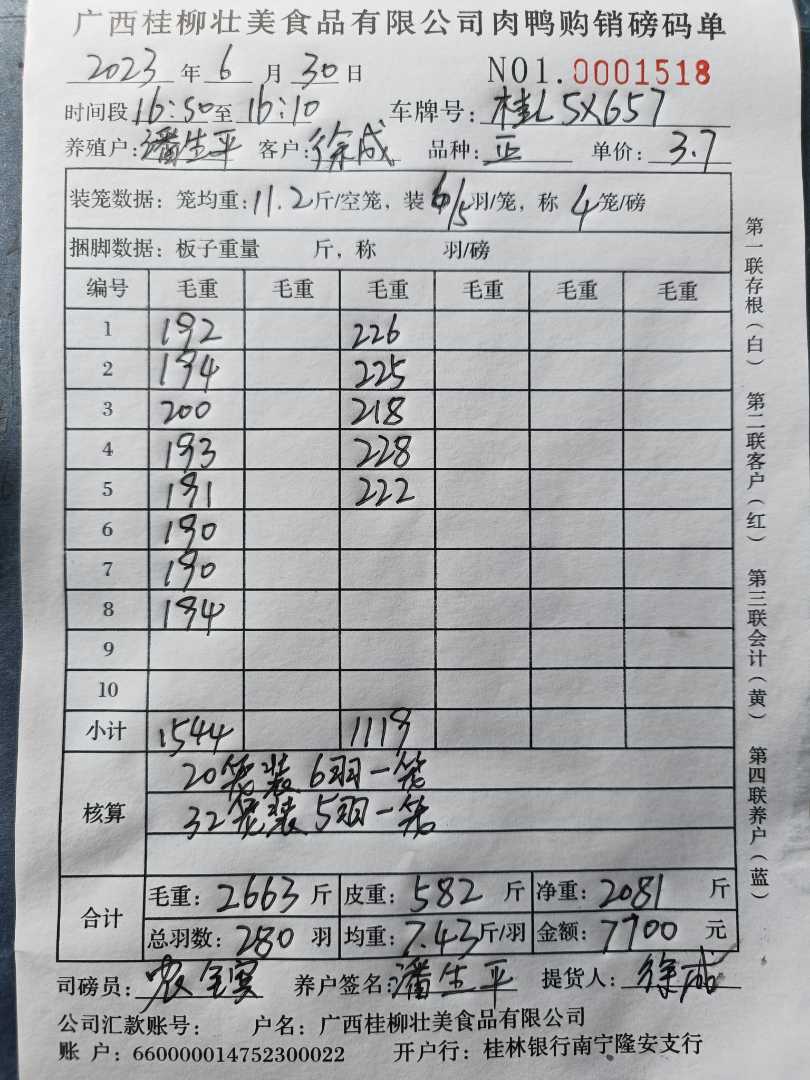 广西桂柳壮美食品有限公司肉鸭购销磅码单
2023年6月30日 NO1.0001518
时间段16:50至16:10 车牌号:桂L5X657
养殖户:潘生平 客户:徐成 品种:正 单价:3.7
装笼数据:笼均重:11.2斤/空笼,装6/5羽/笼,称4笼/磅
捆脚数据:板子重量 斤,称 羽/磅
编号 毛重 毛重 毛重 毛重 毛重 毛重
1 192 226
2 194 225
3 200 218
4 193 228
5 191 222
6 190
7 190
8 194
9
10
小计 1544 1119
核算 20笼装6羽一笼
32笼装5羽一笼
合计 毛重:2663斤 皮重:582斤 净重:2081斤
总羽数:280羽 均重:7.43斤/羽 金额:7700元
司磅员:农全实 养户签名:潘生平 提货人:徐成
公司汇款账号: 户名:广西桂柳壮美食品有限公司
账 户:660000014752300022 开户行:桂林银行南宁隆安支行
第一联存根(白) 第二联客户(红) 第三联会计(黄) 第四联养户(蓝)